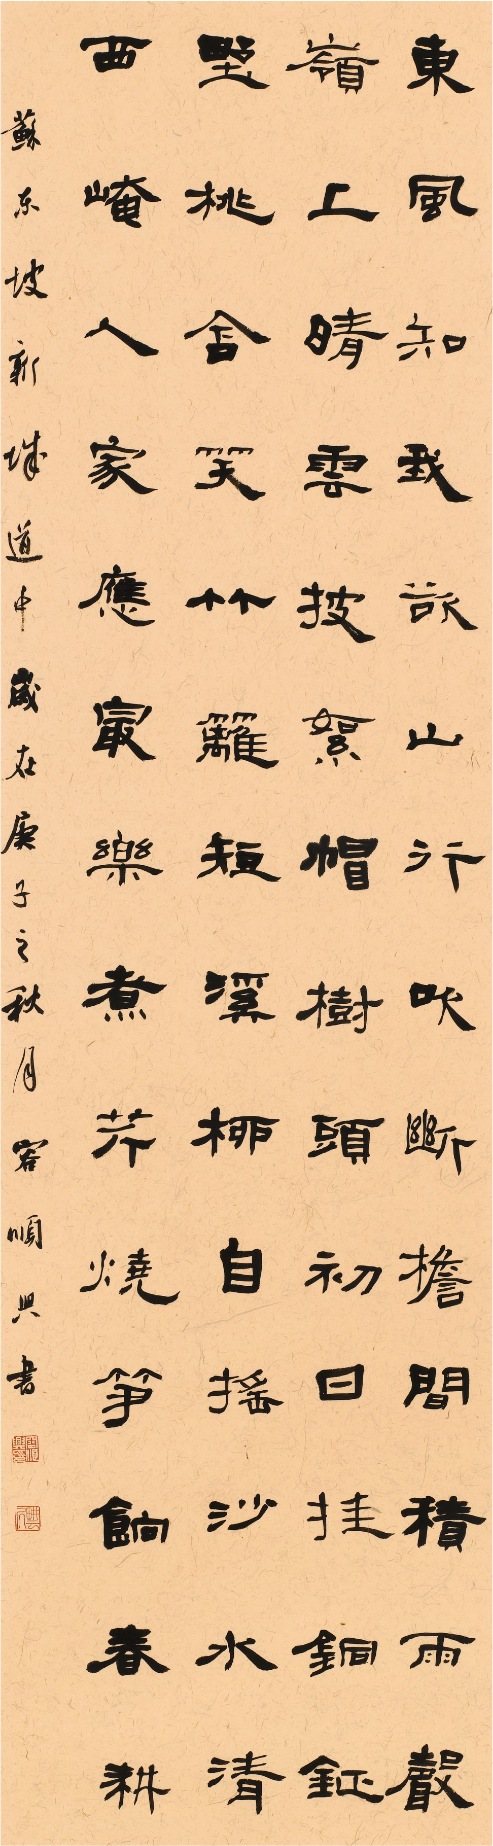 東風知我欲山行吹斷檐間積雨聲
嶺上晴雲披絮帽樹頭初日挂銅鉦
野桃含笑竹籬短溪柳自搖沙水清
西崦人家應最樂煮芹燒筍餉春耕
蘇东坡新城道中歲在庚子之秋月容順興書